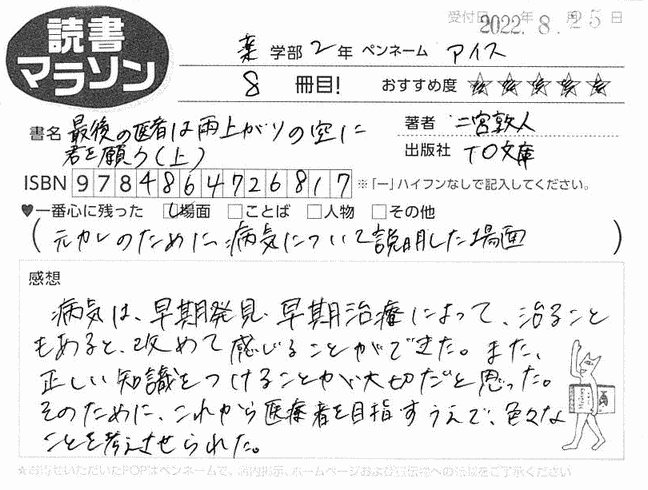 読書
マラソン
受付日 2022年 8月 25日
薬 学部 2 年 ペンネーム アイス
8 冊目! おすすめ度 ★★★★★
書名 最後の医者は雨上がりの空に
君を願う(上)
著者 二宮敦人
出版社 TO文庫
ISBN 9784864726817 ※「−」ハイフンなしで記入してください。
♥一番心に残った ☑場面 □ことば □人物 □その他
(元カレのために、病気について説明した場面)
感想
病気は、早期発見・早期治療によって、治ること
もあると、改めて感じることができた。また、
正しい知識をつけることが大切だと思った。
そのために、これから医療者を目指すうえで、色々な
ことを考えさせられた。
★お寄せいただいたPOPはペンネームで、店内掲示、ホームページおよび